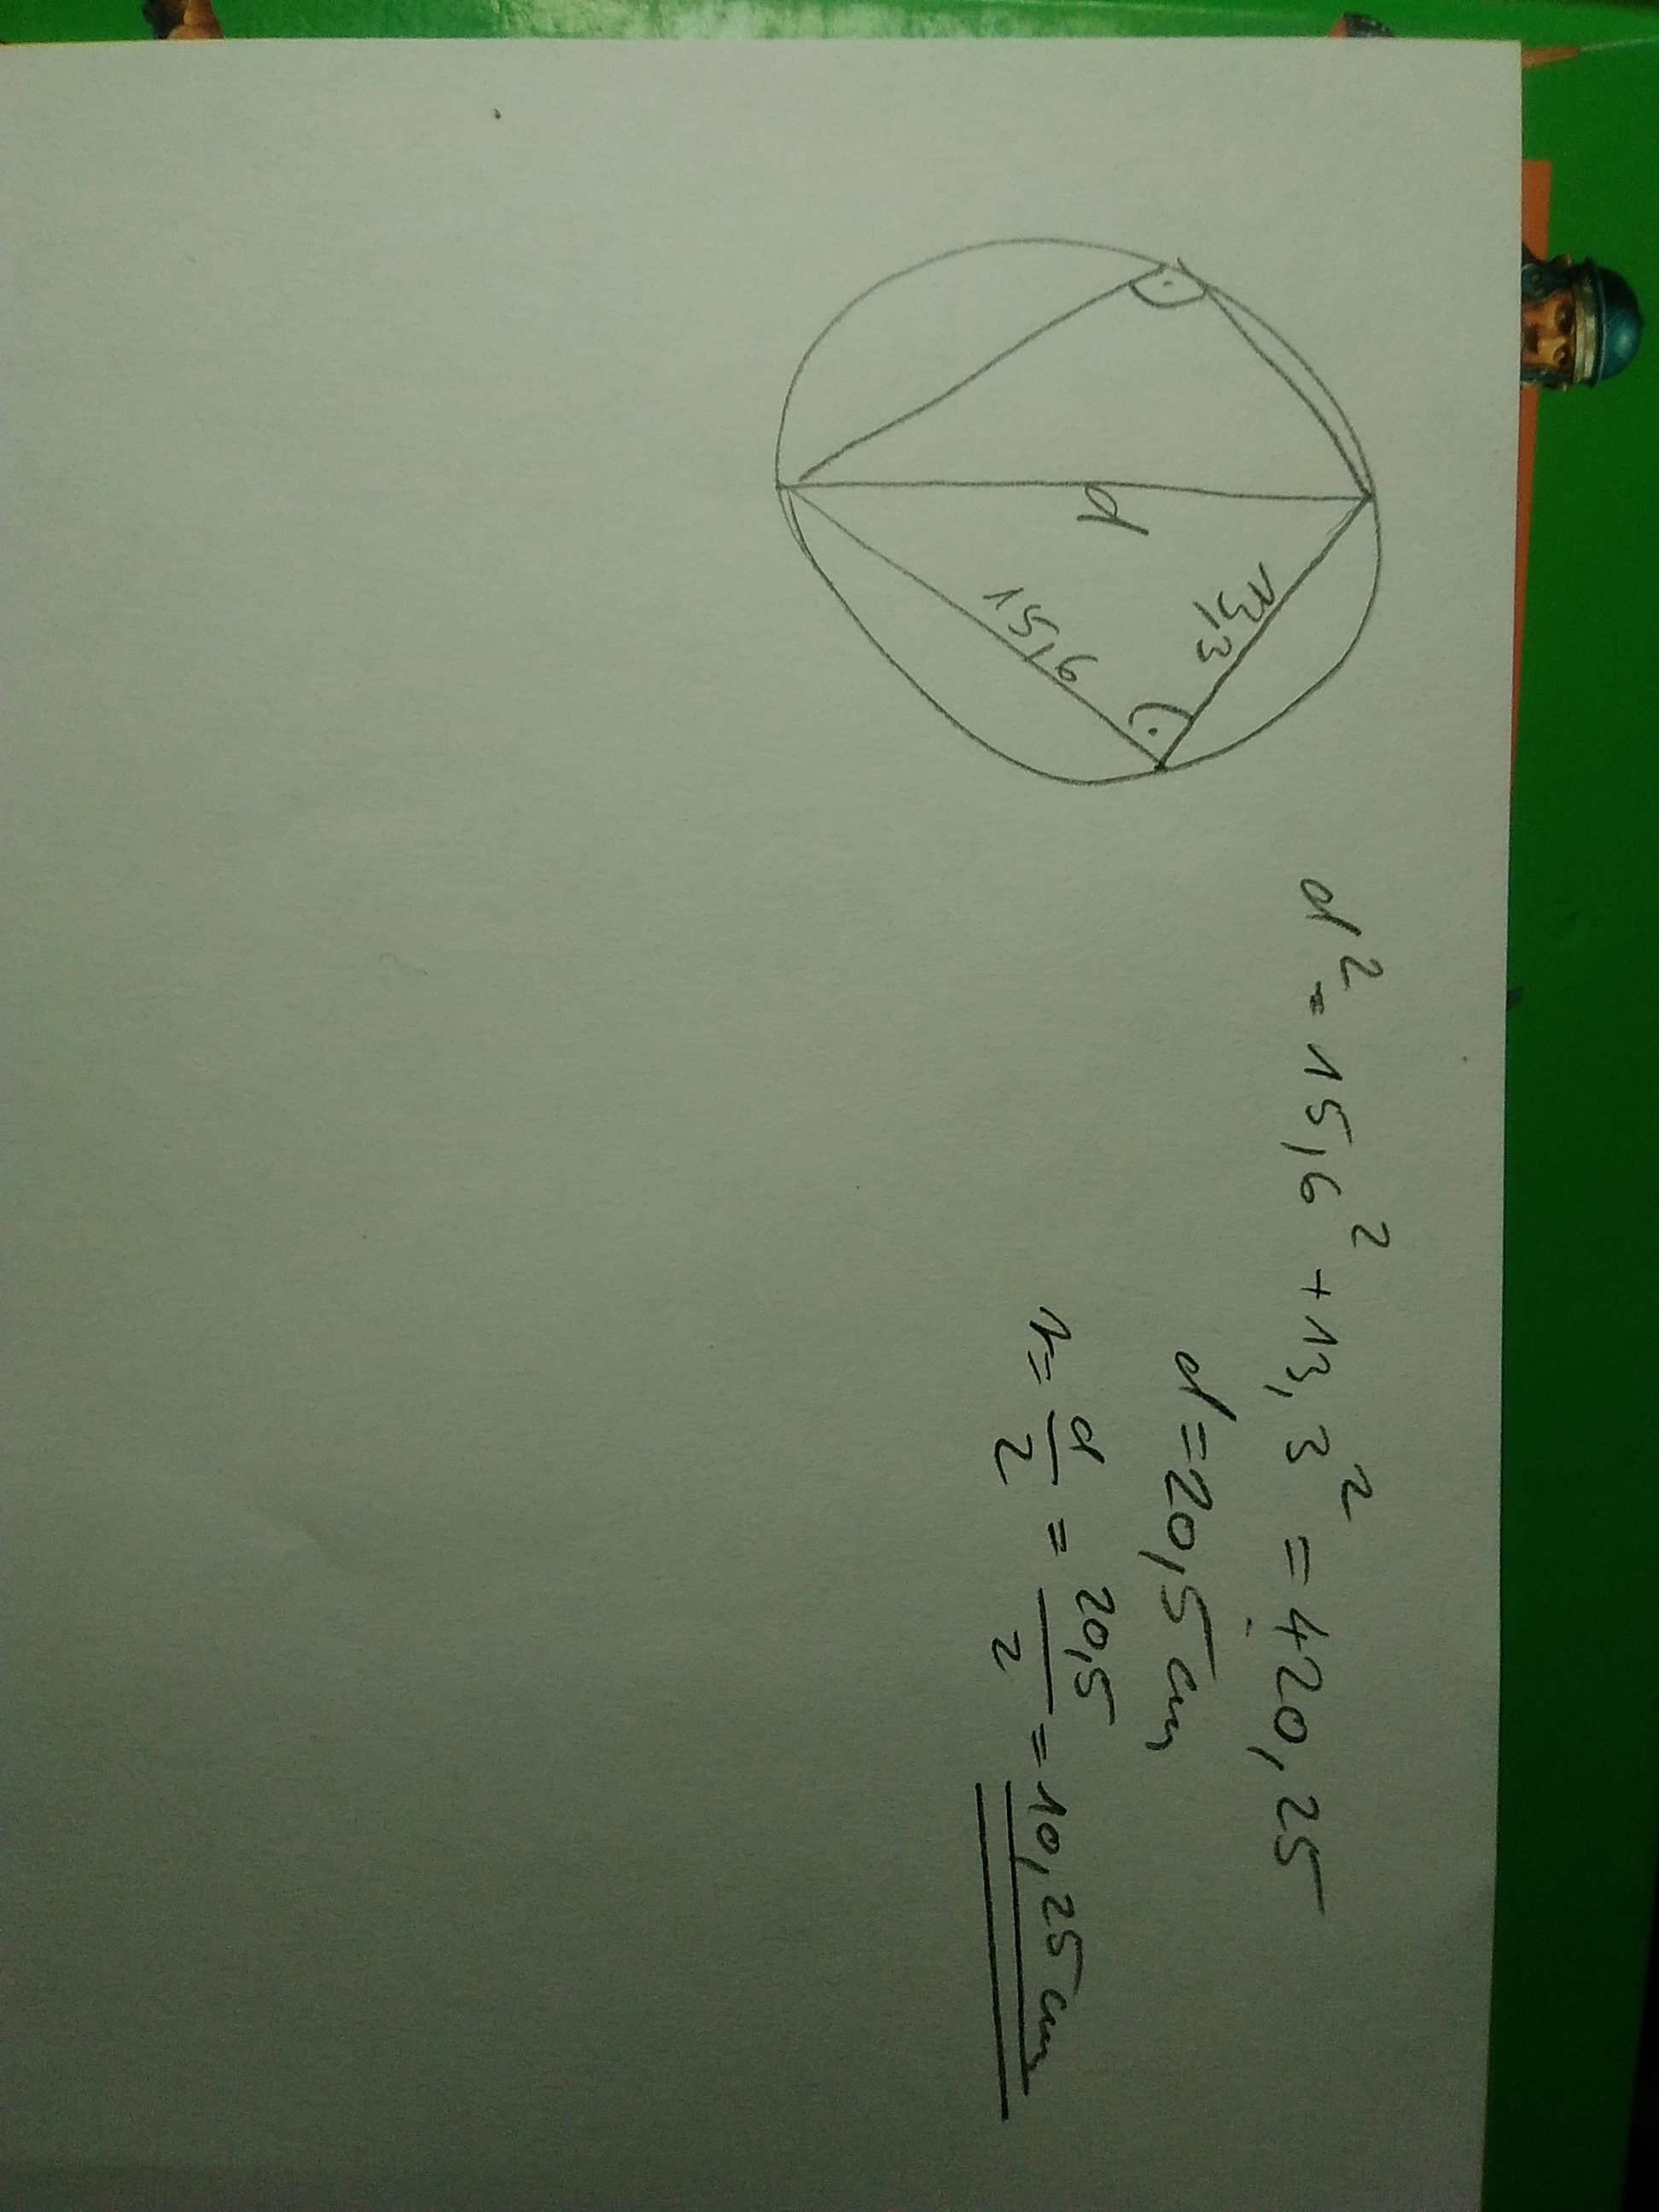 d
13,3
15,6
d² = 15,6² + 13,3² = 420,25
d = 20,5 cm
r = d/2 = 20,5/2 = 10,25 cm